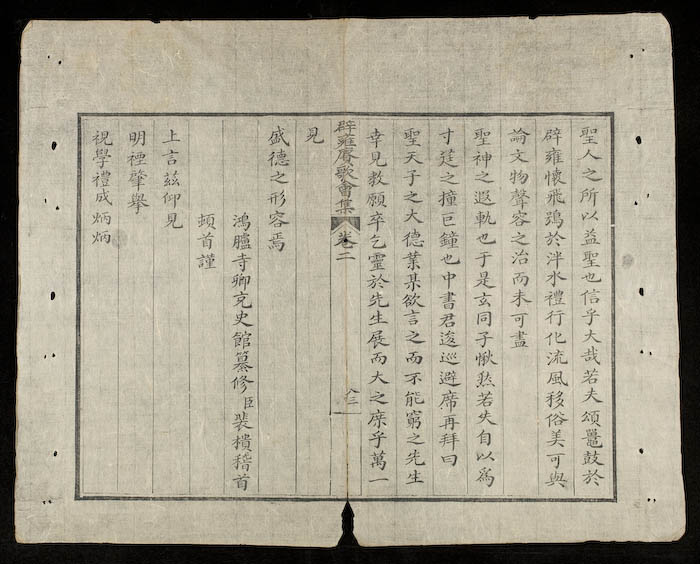 聖人之所以益聖也信乎大哉若夫頌鼉鼓於
辟雍懷飛鴞於泮水禮行化流風移俗美可與
論文物聲容之治而未可盡
聖神之遐軌也于是玄同子愀然若失自以爲
寸莛之撞巨鐘也中書君逡巡避席再拜曰
聖天子之大德業某欲言之而不能窮之先生
幸見教願卒乞靈於先生展而大之庶乎萬一
辟雍賡歌會集 卷二
六三
見
盛德之形容焉
鴻臚寺卿充史館纂修臣裴樻稽首
頓首謹
上言茲仰見
明禋肇舉
視學禮成炳炳